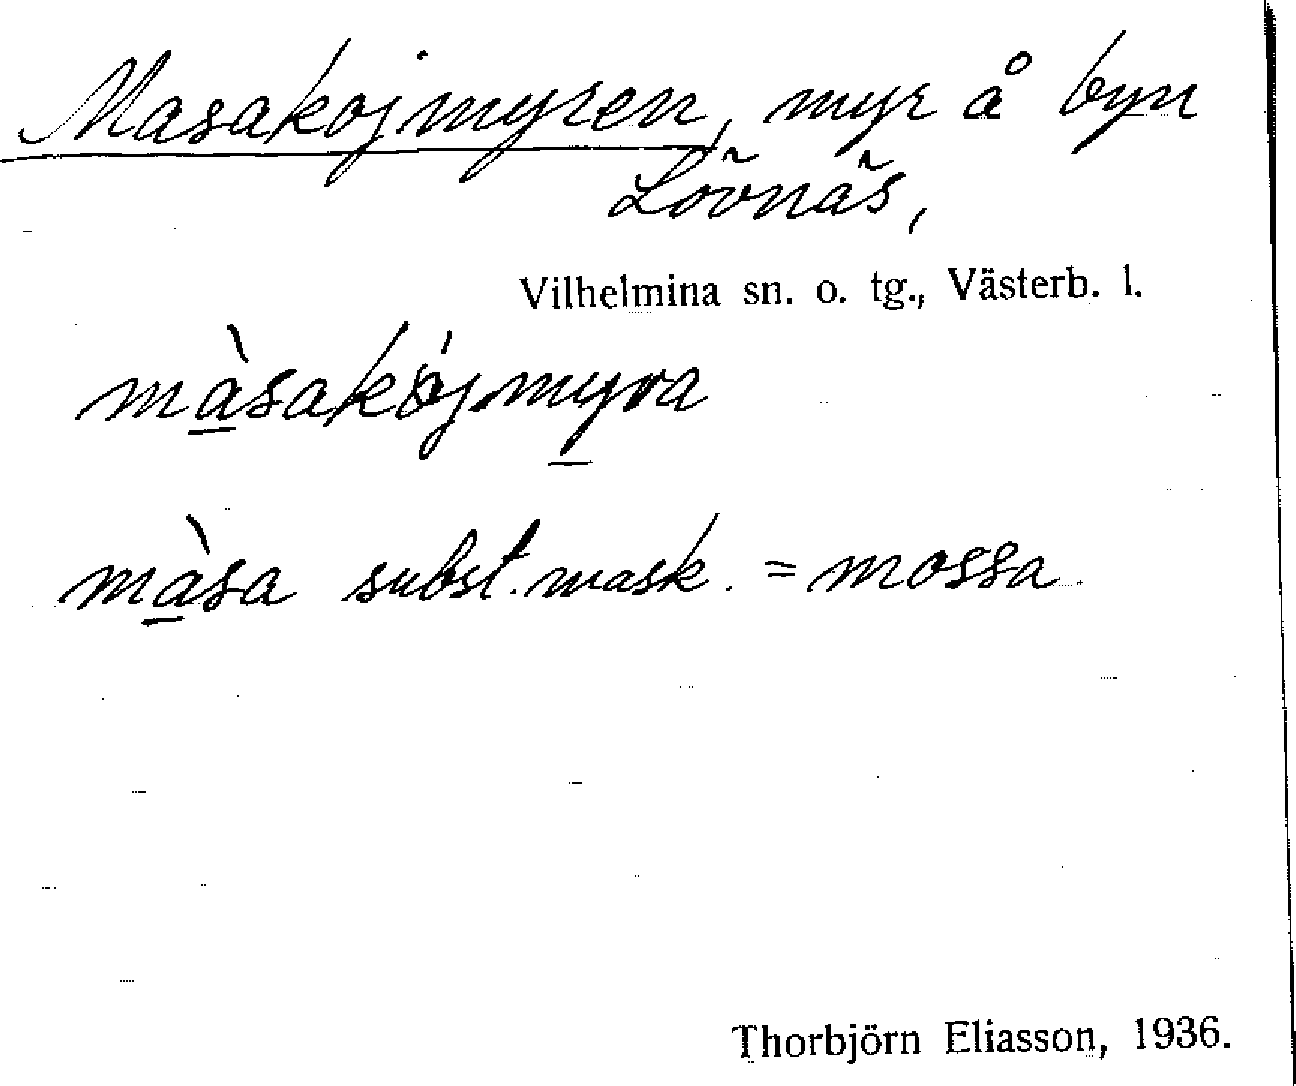 Masakojmyren, myr å byn
Lövnäs,
Vilhelmina sn. o. tg., Västerb. l.
màsakójmyra
màsa subst. mask. = mossa.
Thorbjörn Eliasson, 1936.